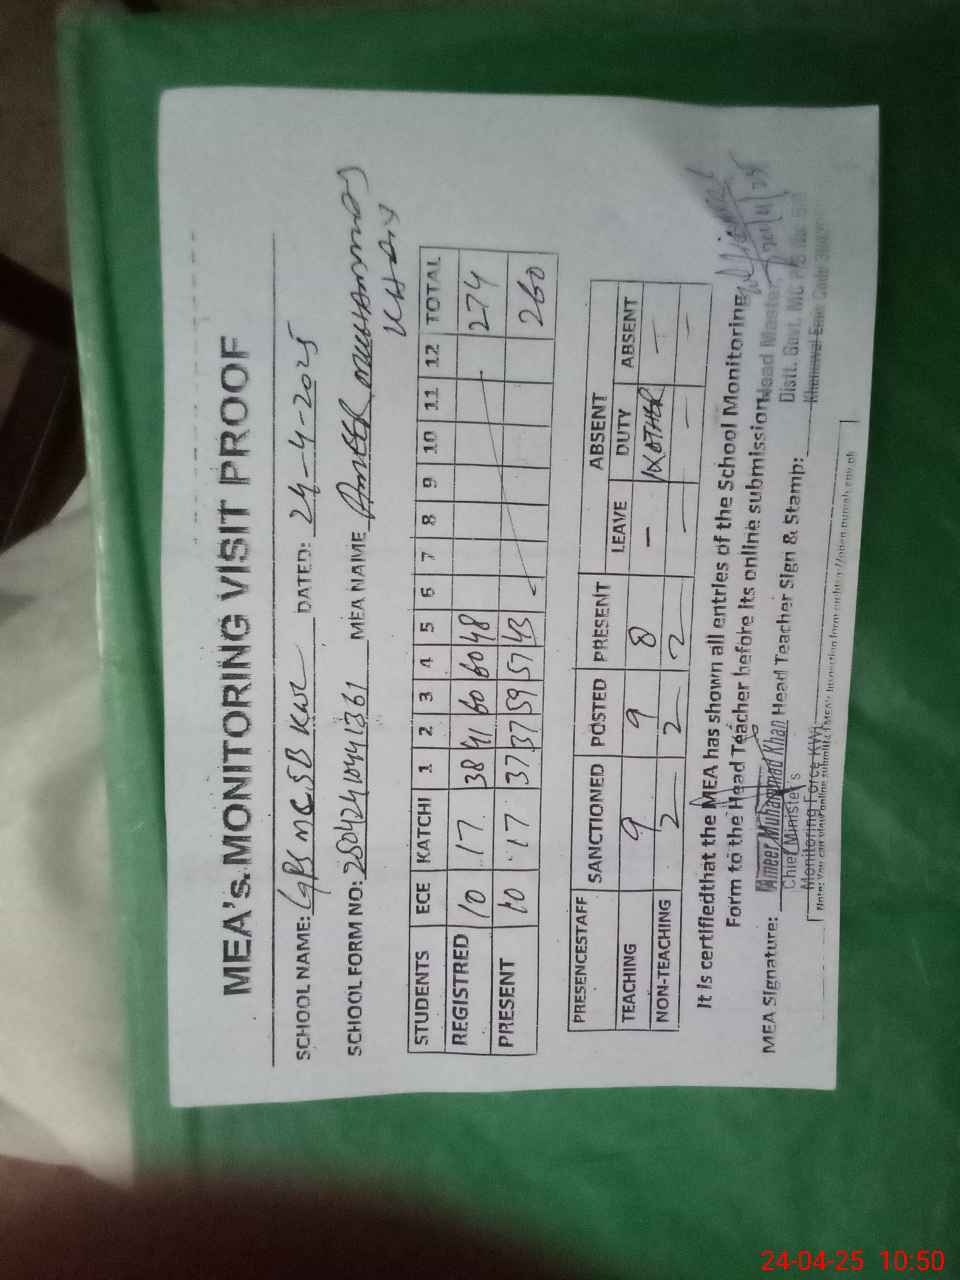 MEA's MONITORING VISIT PROOF
SCHOOL NAME: GPS MC SD KWL DATED: 24-4-2025
SCHOOL FORM NO: MEA NAME AMEER MUHAMMAD
KHAN
STUDENTS ECE KATCHI 1 2 3 4 5 6 7 8 9 10 11 12 TOTAL
REGISTRED 10 17 38 41 60 60 48 274
PRESENT 10 17 37 37 59 57 43 260
PRESENCESTAFF SANCTIONED POSTED PRESENT ABSENT
LEAVE DUTY ABSENT
TEACHING 9 9 8 — 1XOTHER —
NON-TEACHING 2 2 2 — — —
It is certifiedthat the MEA has shown all entries of the School Monitoring
Form to the Head Teacher before its online submission
Head Master
MEA Signature: Ameer Muhammad Khan Head Teacher Sign & Stamp:
Chief Minister's
Monitoring Force KWL
Distt. Govt. MC P/S
Khanewal Emis Code
Note: You can view online submitted MEA's Inspection form on
24-04-25 10:50